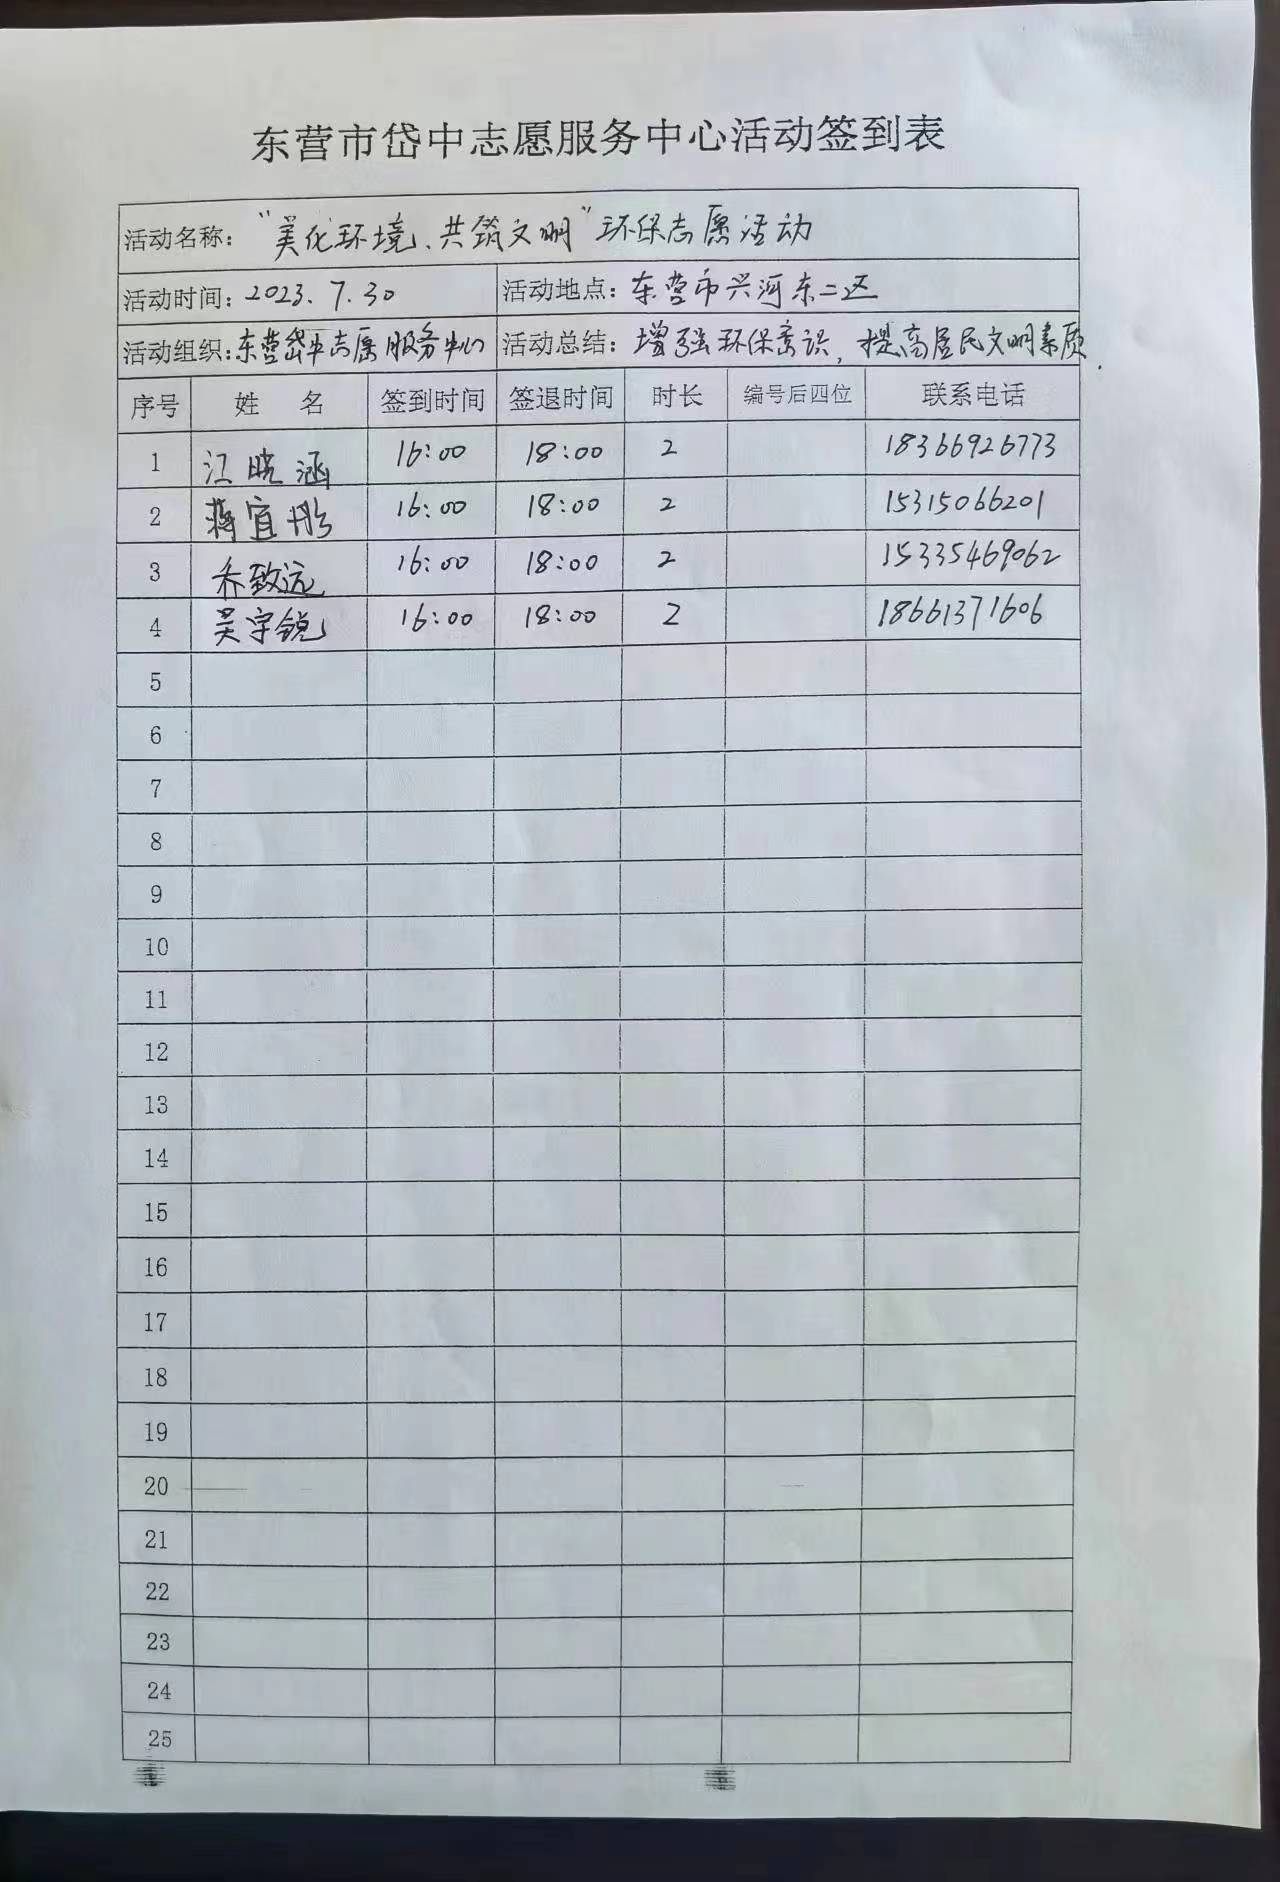 东营市岱中志愿服务中心活动签到表
活动名称：“美化环境、共筑文明”环保志愿活动
活动时间：2023.7.30 活动地点：东营市兴河东二区
活动组织：东营岱中志愿服务中心 活动总结：增强环保意识，提高居民文明素质.
序号 姓 名 签到时间 签退时间 时长 编号后四位 联系电话
1 江晓涵 16:00 18:00 2 18366926773
2 蒋宜彤 16:00 18:00 2 15315066201
3 乔致远 16:00 18:00 2 15335469062
4 吴宇锐 16:00 18:00 2 18661371606
5
6
7
8
9
10
11
12
13
14
15
16
17
18
19
20
21
22
23
24
25